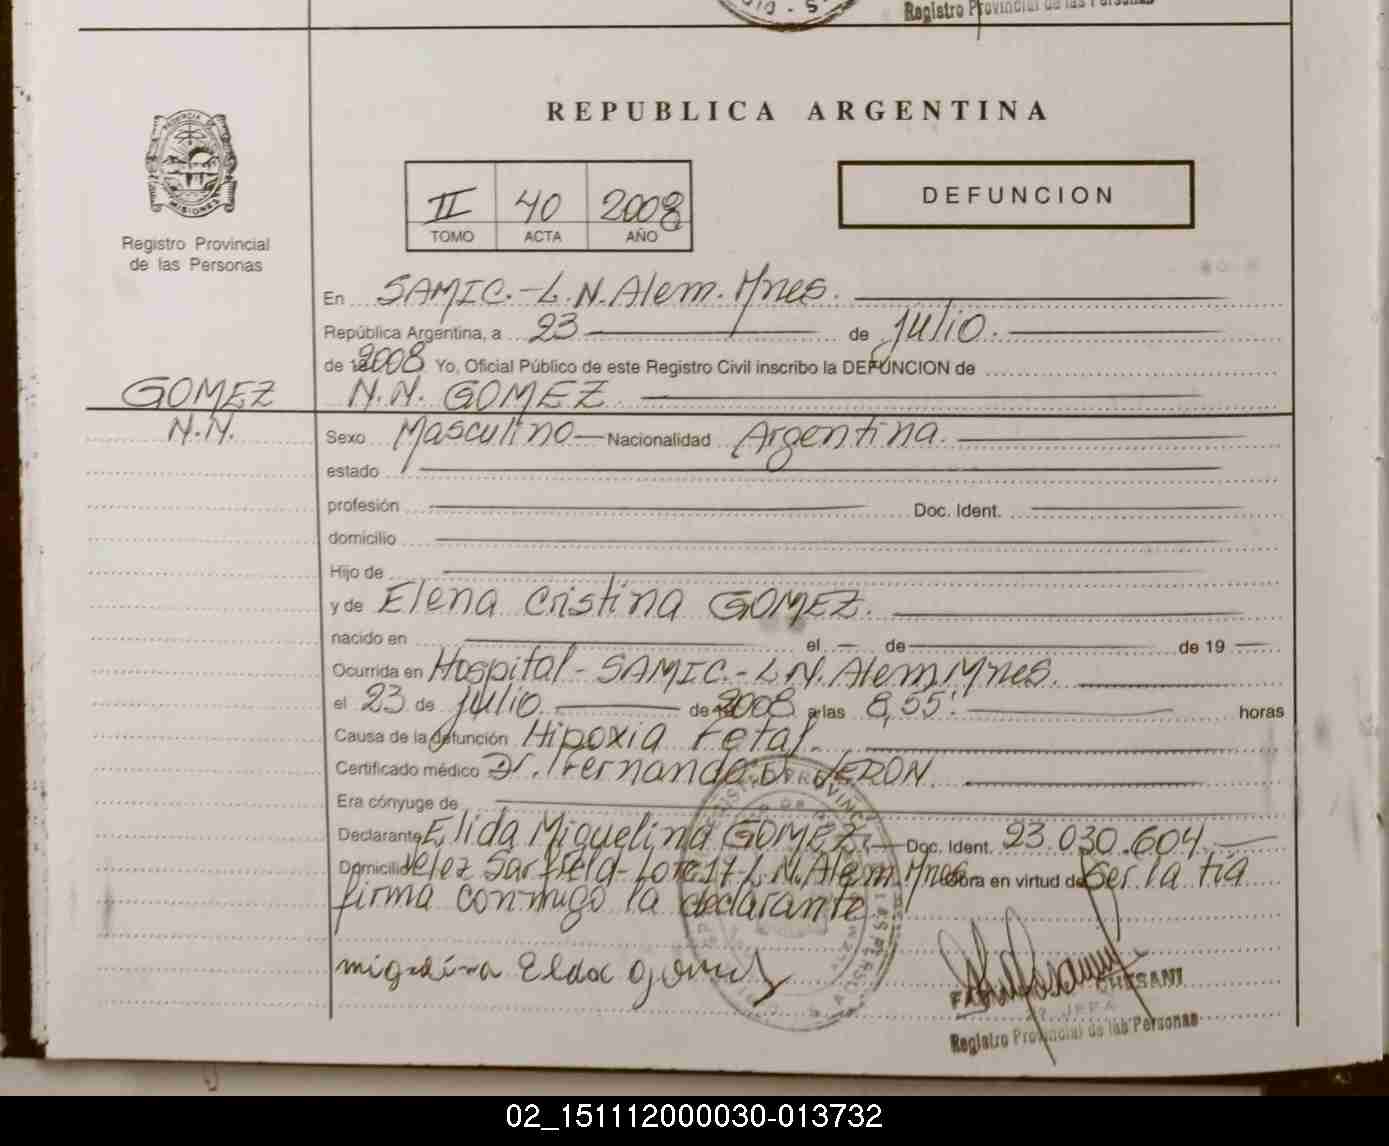 Registro Provincial de las Personas
REPUBLICA ARGENTINA
II 40 2008
TOMO ACTA AÑO
DEFUNCION
PROVINCIA DE
MISIONES
Registro Provincial
de las Personas
En SAMIC.-L.N.Alem.Mnes.
República Argentina, a 23 de julio.
de 2008 Yo, Oficial Público de este Registro Civil inscribo la DEFUNCION de
GOMEZ N.N. GOMEZ
N.N. Sexo Masculino Nacionalidad Argentina.
estado
profesión Doc. Ident.
domicilio
Hijo de
y de Elena Cristina GOMEZ.
nacido en el de de 19
Ocurrida en Hospital-SAMIC.-L.N.Alem Mnes.
el 23 de julio. de 2008 a las 8,55' horas
Causa de la defunción Hipoxia Fetal.
Certificado médico Dr. Fernando D. JERON.
Era cónyuge de
Declarante Elida Miguelina GOMEZ.- Doc. Ident. 23.030.604.
Domicilio Velez Sarfield-Lote 17 L.N.Alem.Mnes Obra en virtud de Ser la tia
firma conmigo la declarante
Elda
CHESANI
JEFA
Registro Provincial de las Personas
02_151112000030-013732